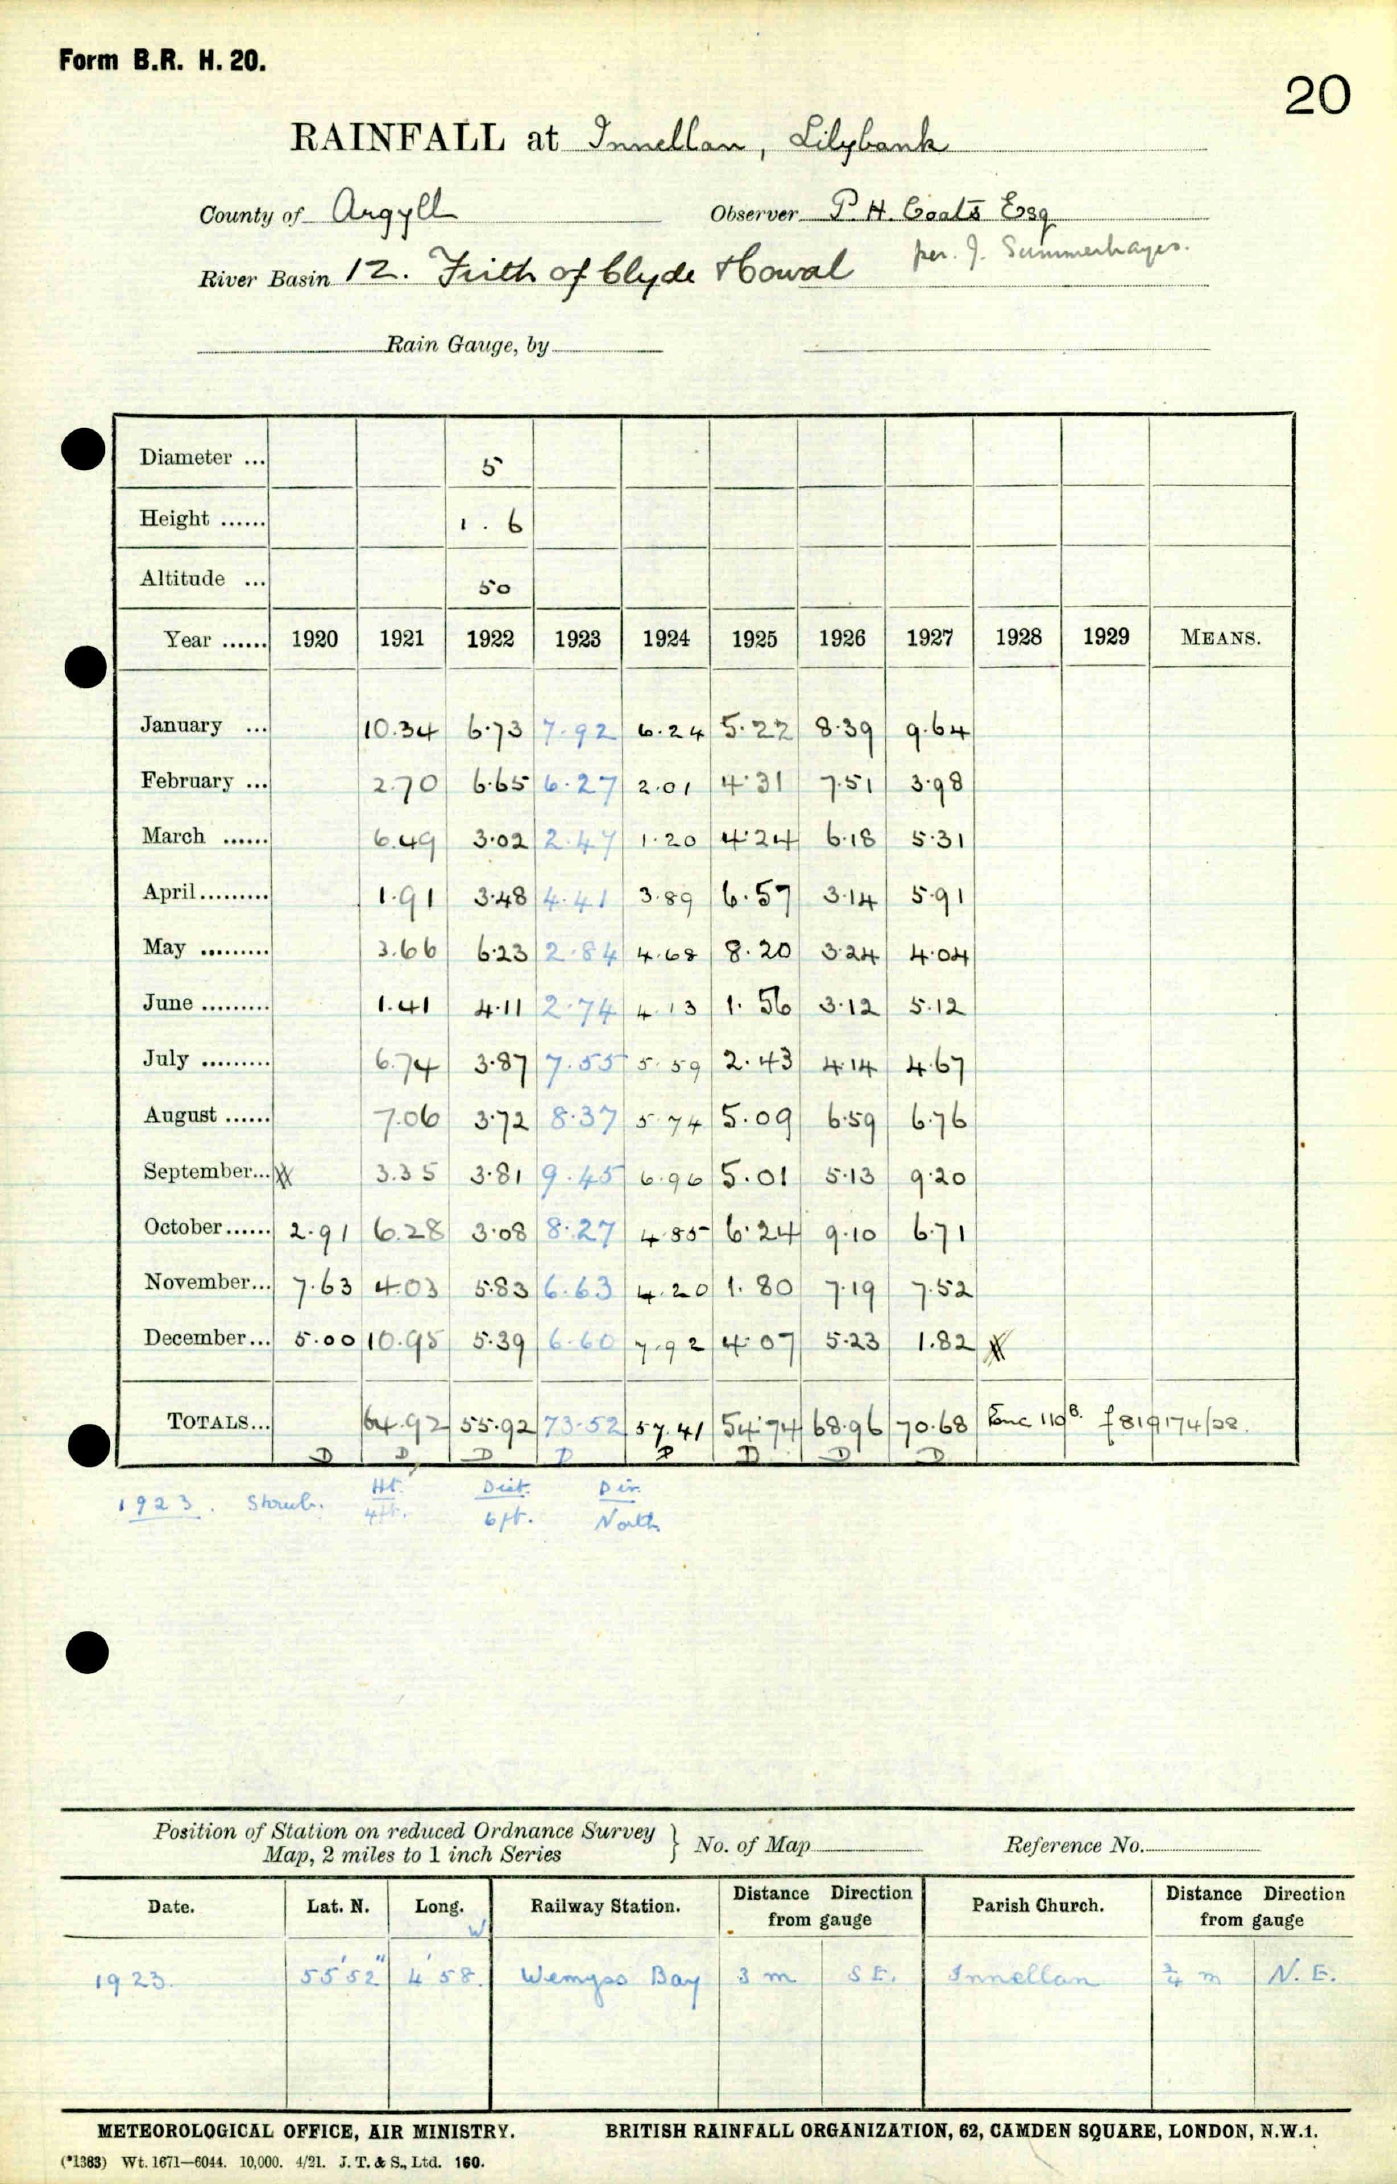 Form B.R. H. 20.
20
RAINFALL at Innellan, Lilybank
County of Argyll Observer P. H. Coats Esq
per. J. Summerhayes.
River Basin 12. Firth of Clyde & Cowal
Rain Gauge, by
Diameter ... 5
Height ...... 1 . 6
Altitude ... 50
Year ...... 1920 1921 1922 1923 1924 1925 1926 1927 1928 1929 MEANS.
January ... 10.34 6.73 7.92 6.24 5.22 8.39 9.64
February ... 2.70 6.65 6.27 2.01 4.31 7.51 3.98
March ...... 6.49 3.02 2.47 1.20 4.24 6.18 5.31
April......... 1.91 3.48 4.41 3.89 6.57 3.14 5.91
May ......... 3.66 6.23 2.84 4.68 8.20 3.24 4.04
June ......... 1.41 4.11 2.74 4.13 1.56 3.12 5.12
July ......... 6.74 3.87 7.55 5.59 2.43 4.14 4.67
August ...... 7.06 3.72 8.37 5.74 5.09 6.59 6.76
September... 3.35 3.81 9.45 6.96 5.01 5.13 9.20
October...... 2.91 6.28 3.08 8.27 4.85 6.24 9.10 6.71
November... 7.63 4.03 5.83 6.63 4.20 1.80 7.19 7.52
December... 5.00 10.95 5.39 6.60 7.92 4.07 5.23 1.82
TOTALS... 64.92 55.92 73.52 57.41 54.74 68.96 70.68 110 f819174/28.
D D D D D D D D
1923. Shrub. Ht. 4ft. Dist. 6ft. Dir. North
Position of Station on reduced Ordnance Survey
Map, 2 miles to 1 inch Series } No. of Map Reference No.
Date. Lat. N. Long. W Railway Station. Distance Direction from gauge Parish Church. Distance Direction from gauge
1923. 55' 52" 4' 58. Wemyss Bay 3 m S E. Innellan ¾ m N. E.
METEOROLOGICAL OFFICE, AIR MINISTRY. BRITISH RAINFALL ORGANIZATION, 62, CAMDEN SQUARE, LONDON, N.W.1.
(*1383) Wt. 1671—6044. 10,000. 4/21. J. T. & S., Ltd. 160.